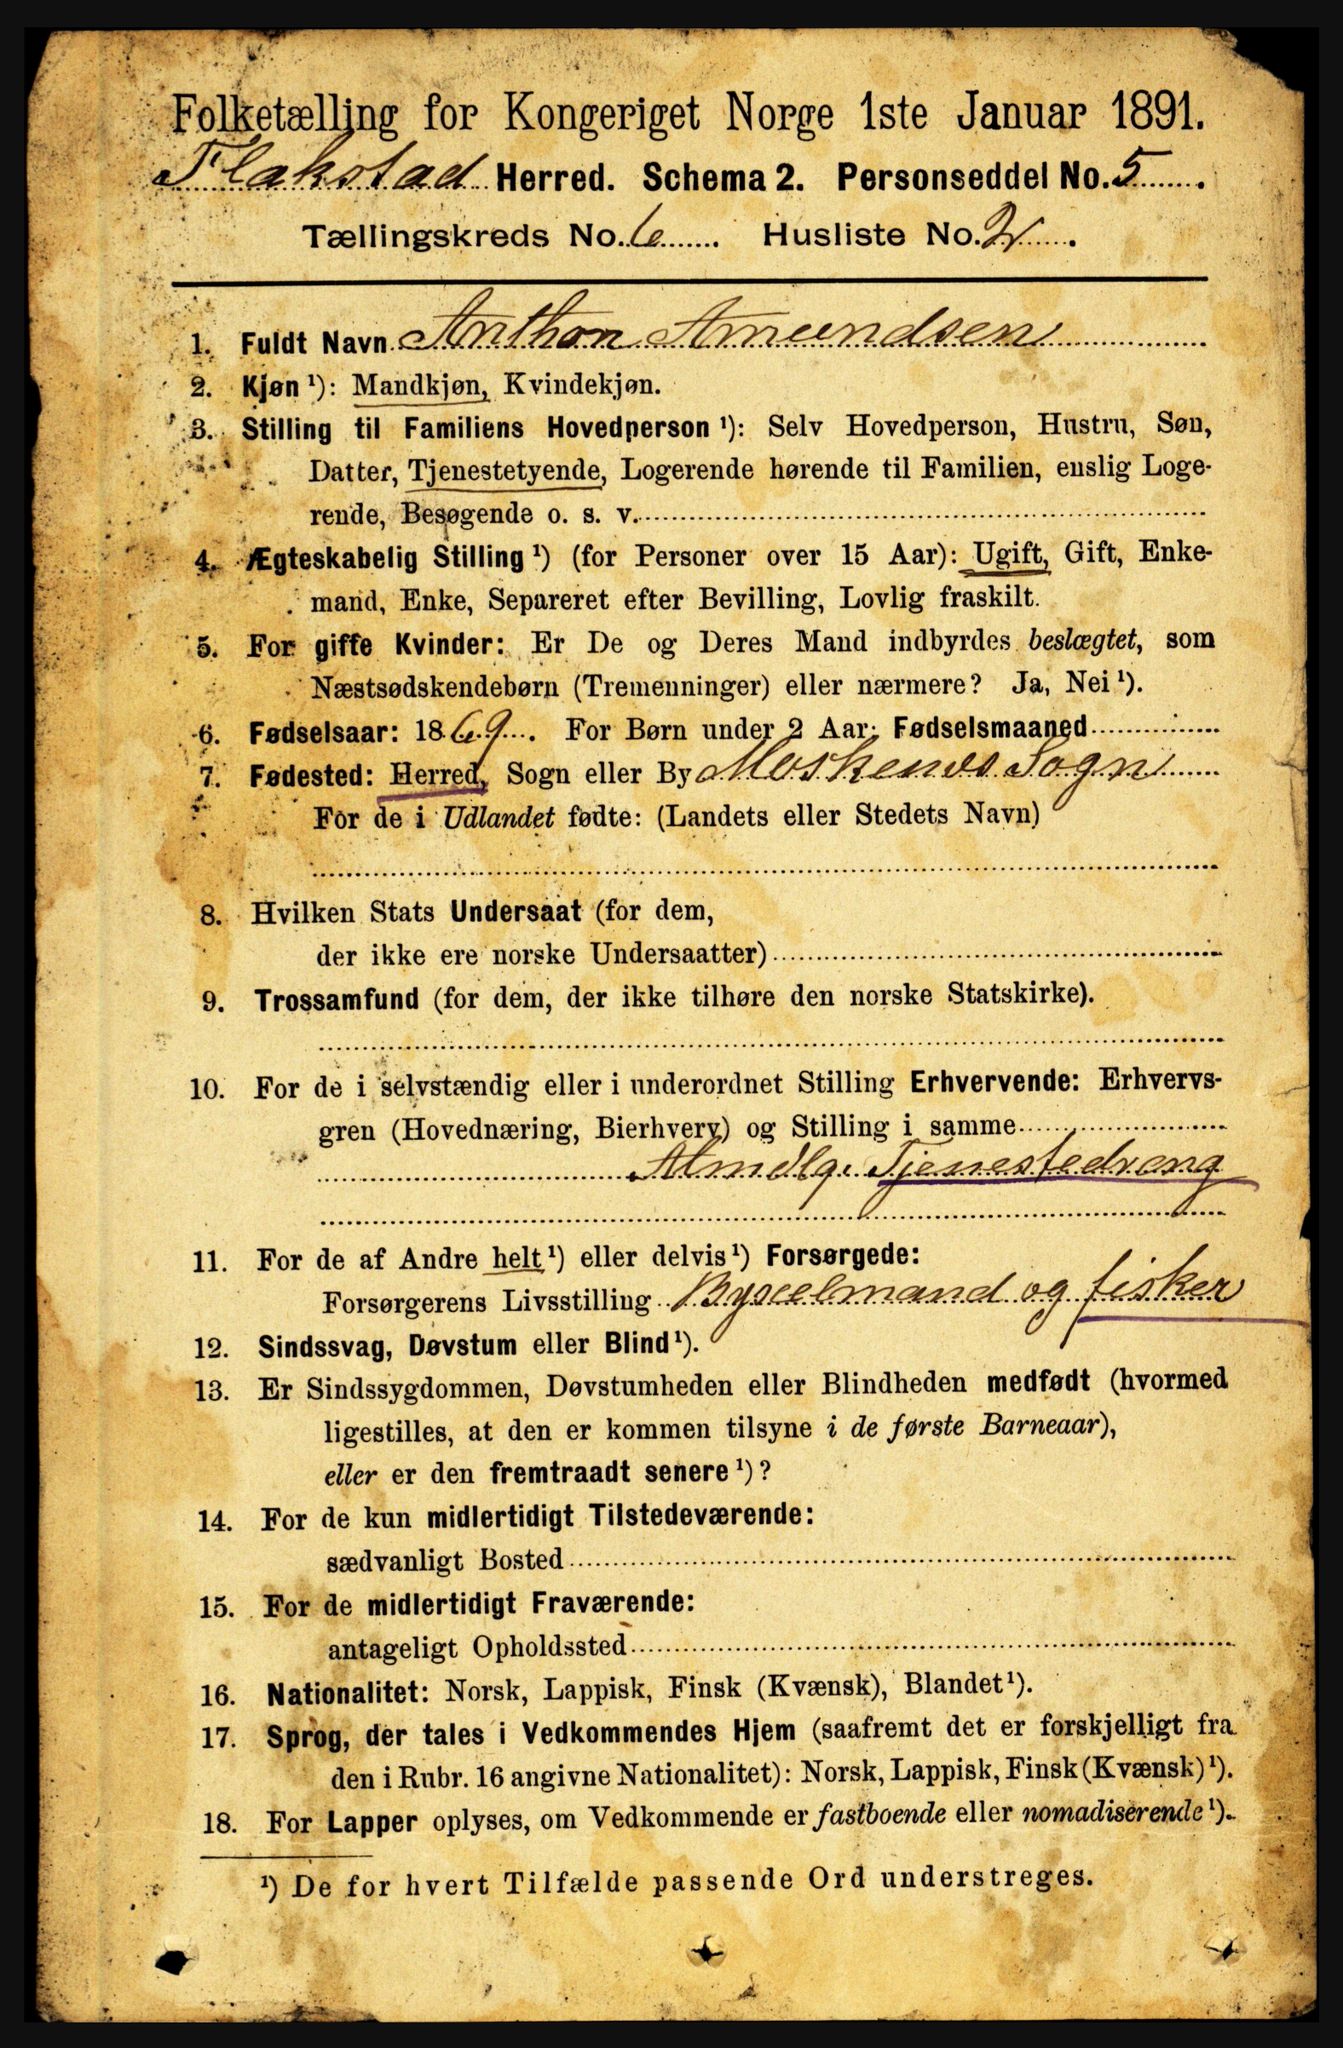 Folketælling for Kongeriget Norge 1ste Januar 1891.
Flakstad Herred. Schema 2. Personseddel No. 5.
Tællingskreds No. 6. Husliste No. 2.
1. Fuldt Navn Anthon Amundsen
2. Kjøn ¹): Mandkjøn, Kvindekjøn.
3. Stilling til Familiens Hovedperson ¹): Selv Hovedperson, Hustru, Søn,
Datter, Tjenestetyende, Logerende hørende til Familien, enslig Loge-
rende, Besøgende o. s. v.
4. Ægteskabelig Stilling ¹) (for Personer over 15 Aar): Ugift, Gift, Enke-
mand, Enke, Separeret efter Bevilling, Lovlig fraskilt.
5. For gifte Kvinder: Er De og Deres Mand indbyrdes beslægtet, som
Næstsødskendebørn (Tremenninger) eller nærmere? Ja, Nei ¹).
6. Fødselsaar: 1869. For Børn under 2 Aar: Fødselsmaaned
7. Fødested: Herred, Sogn eller By Moskenes Sogn
For de i Udlandet fødte: (Landets eller Stedets Navn)
8. Hvilken Stats Undersaat (for dem,
der ikke ere norske Undersaatter)
9. Trossamfund (for dem, der ikke tilhøre den norske Statskirke).
10. For de i selvstændig eller i underordnet Stilling Erhvervende: Erhvervs-
gren (Hovednæring, Bierhverv) og Stilling i samme
Almdlg. Tjenestedreng
11. For de af Andre helt ¹) eller delvis ¹) Forsørgede:
Forsørgerens Livsstilling Byxelmand og fisker
12. Sindssvag, Døvstum eller Blind ¹).
13. Er Sindssygdommen, Døvstumheden eller Blindheden medfødt (hvormed
ligestilles, at den er kommen tilsyne i de første Barneaar),
eller er den fremtraadt senere ¹)?
14. For de kun midlertidigt Tilstedeværende:
sædvanligt Bosted
15. For de midlertidigt Fraværende:
antageligt Opholdssted
16. Nationalitet: Norsk, Lappisk, Finsk (Kvænsk), Blandet ¹).
17. Sprog, der tales i Vedkommendes Hjem (saafremt det er forskjelligt fra
den i Rubr. 16 angivne Nationalitet): Norsk, Lappisk, Finsk (Kvænsk) ¹).
18. For Lapper oplyses, om Vedkommende er fastboende eller nomadiserende ¹).
¹) De for hvert Tilfælde passende Ord understreges.